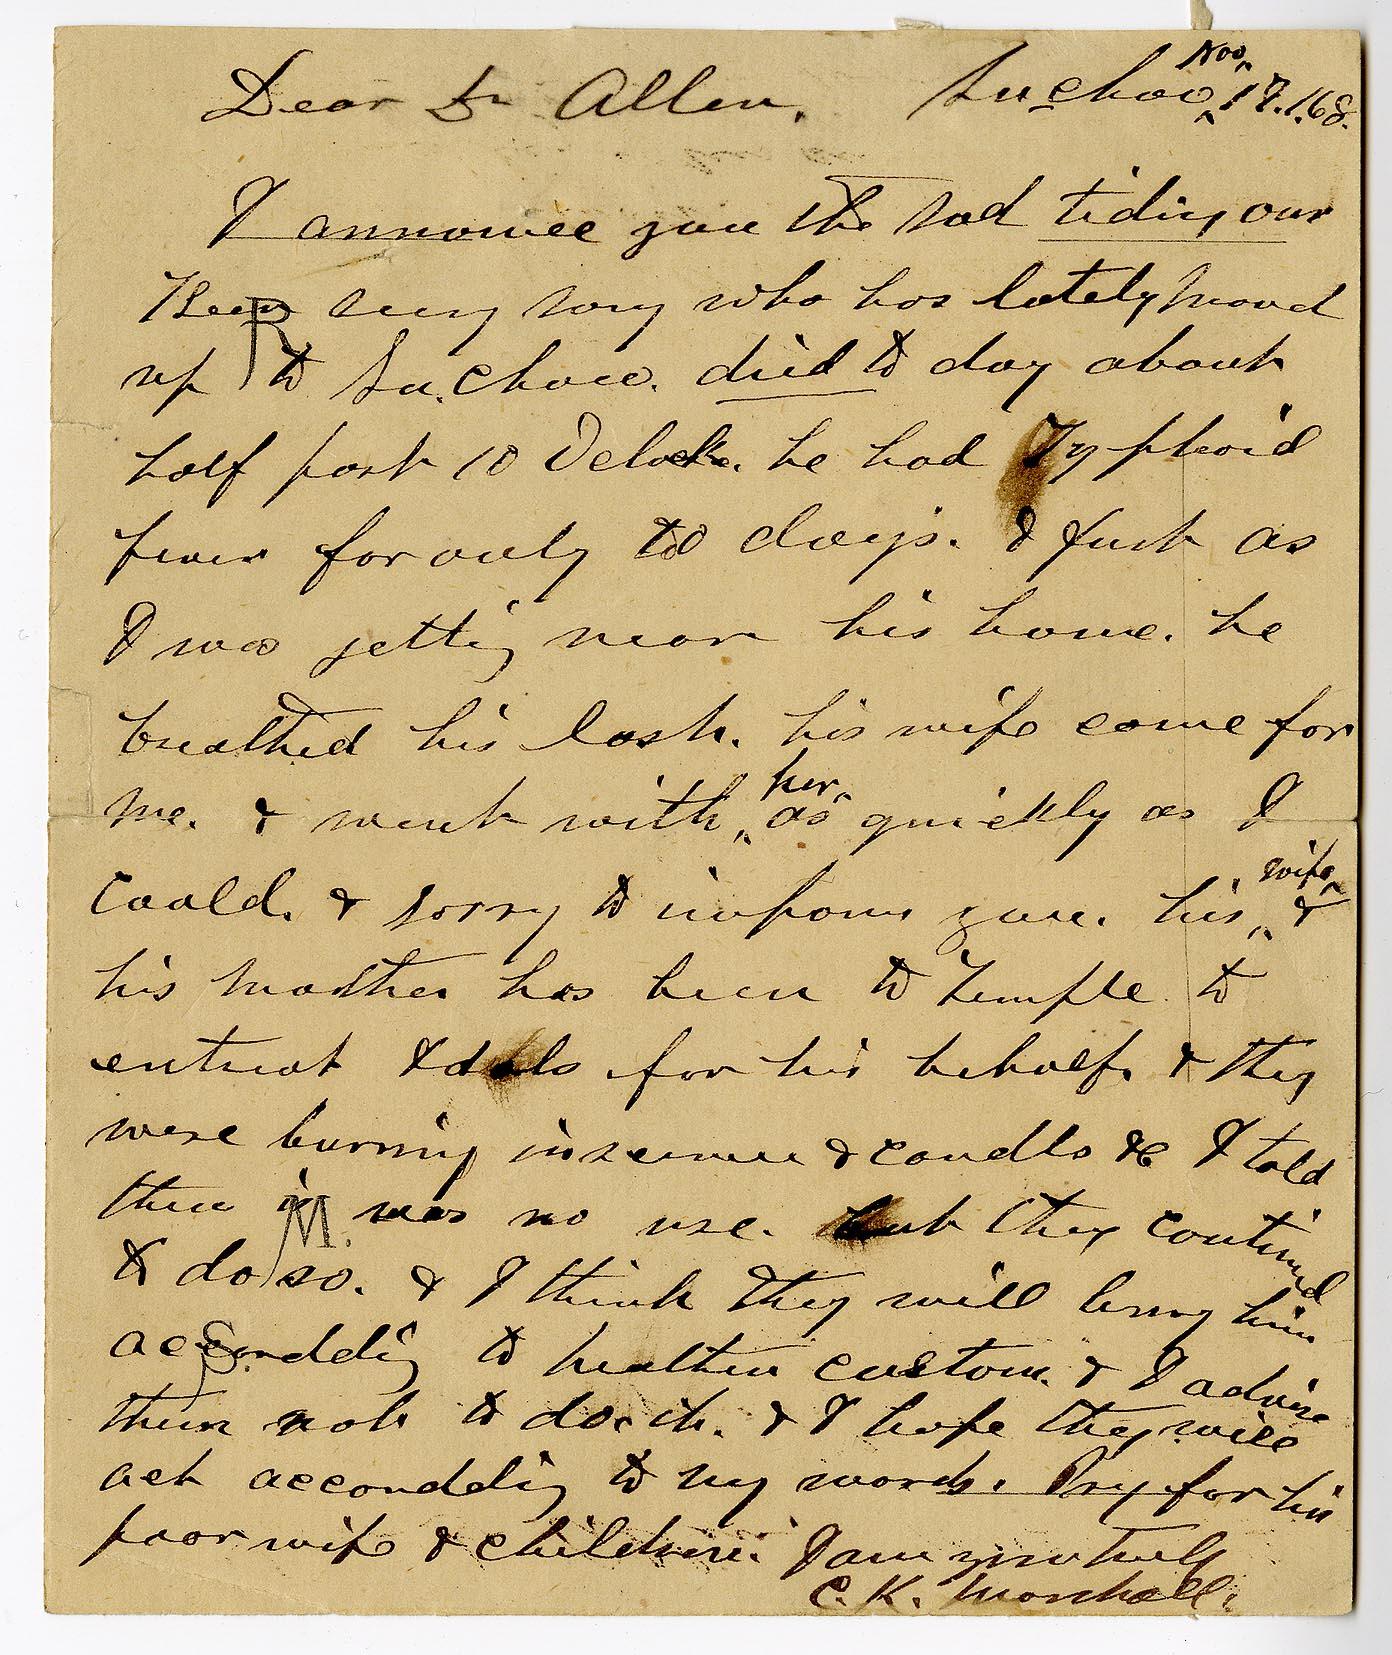 Dear Dr Allen. Suchoo Nov. 17. 168.
I announce you the sad tiding our
sung who has lately moved
up to Su.Choo. died to day about
half past 10 Oclock. he had Typhoid
fever for only 10 days. & Just as
I was getting near his home. he
breathed his last. his wife come for
me. & went with her. as quickly as I
could. & sorry to inform you. his wife &
his mother has been to Temple to
entreat Idols for his behalf. & they
were burning insence & candls &c I told
them it was no use. but they continud
to do so. & I think they will bury him
accordding to heathen custom. & I advise
them not to do it. & I hope they will
act accordding to my words. Pry for his
poor wife & children. I am your truly
C. K. Marshall.
R
M.
S.